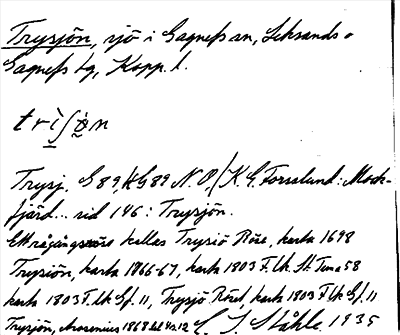 Trysjön, sjö i Gagnefs sn, Leksands o
Gagnefs tg, Kopp. l.
trìʃøn
Trysj. G 89, KG 89 N. O./K. G. Forsslund: Mock-
fjärd... sid 146: Trysjön.
Ett rågångsrös kallas Trysiö Röse, karta 1698
Trysiön, karta 1866-67, karta 1803 F. lk. St. Tuna 58
karta 1803 F. lk Gf. 11, Trysjö Röset, karta 1803 F. lk Gf. 11
Trysjön, Arosenius 1868 12 1935